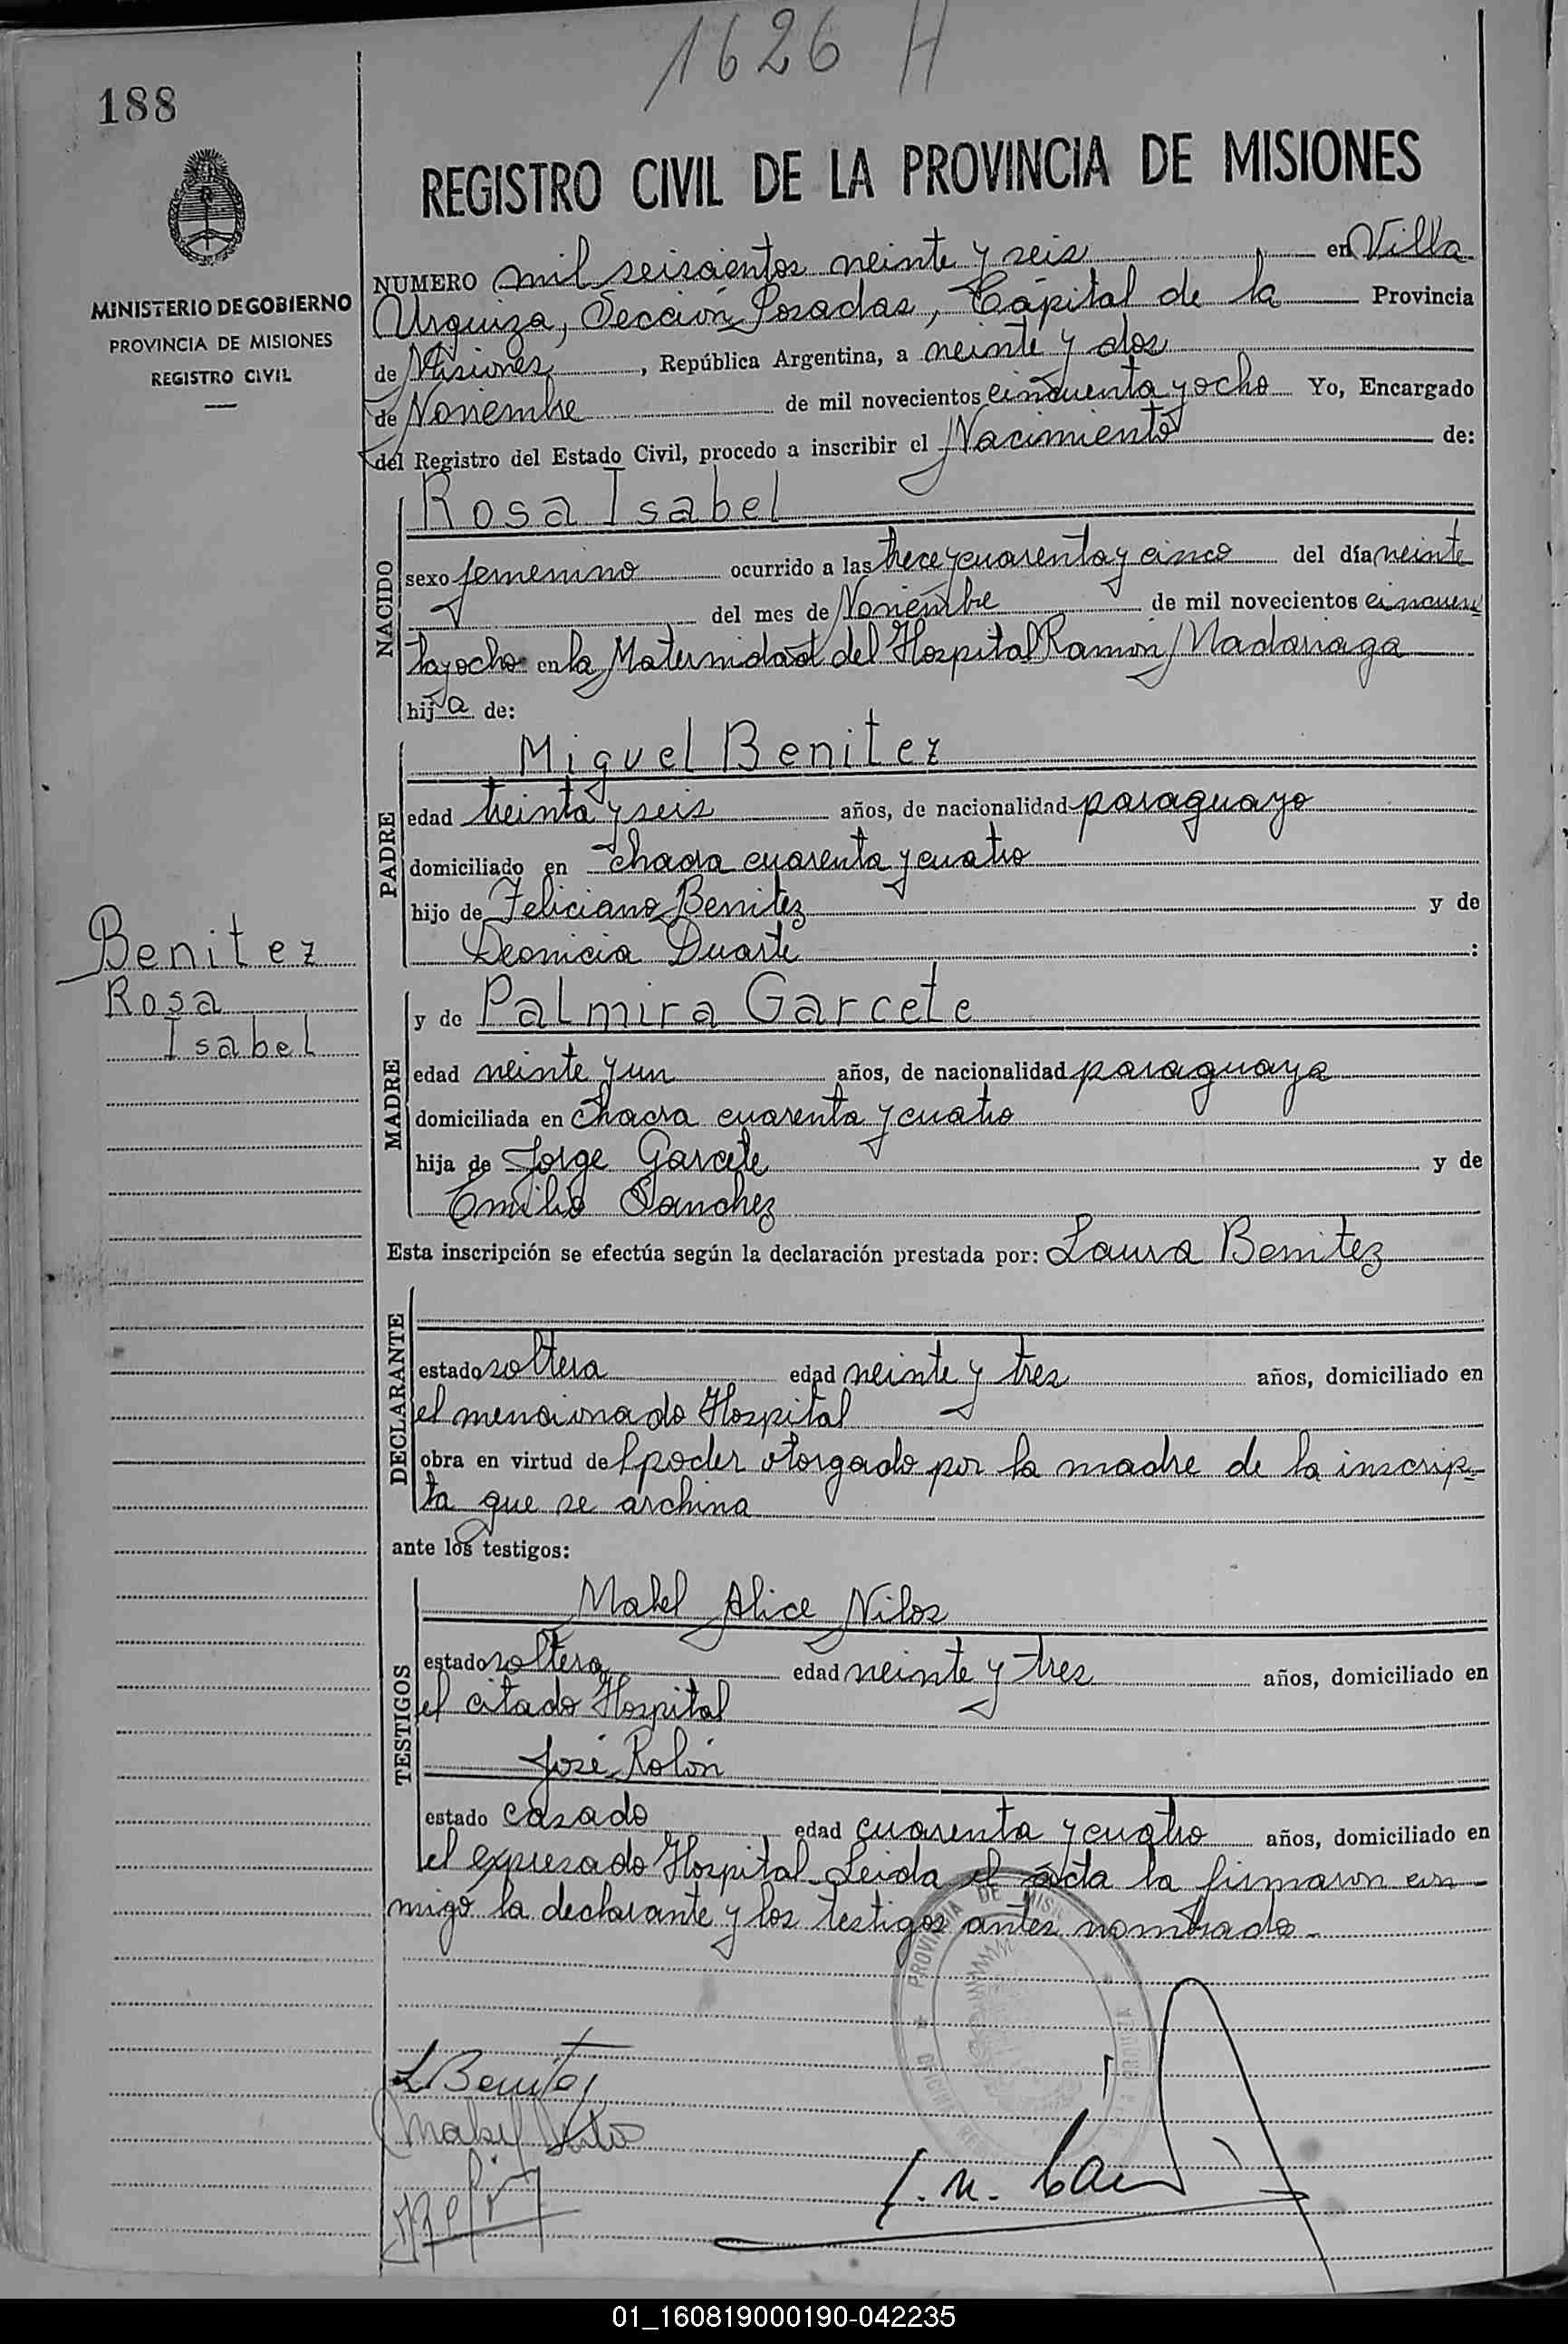 1626 H
188
REGISTRO CIVIL DE LA PROVINCIA DE MISIONES
MINISTERIO DE GOBIERNO
PROVINCIA DE MISIONES
REGISTRO CIVIL
NUMERO mil seiscientos veinte y seis en Villa
Urquiza, Sección Posadas, Capital de la Provincia
de Misiones, República Argentina, a veinte y dos
de Noviembre de mil novecientos cincuenta y ocho Yo, Encargado
del Registro del Estado Civil, procedo a inscribir el Nacimiento de:
NACIDO
Rosa Isabel
sexo femenino ocurrido a las trece y cuarenta y cinco del día veinte
del mes de Noviembre de mil novecientos cincuen
ta y ocho en la Maternidad del Hospital Ramón Madariaga
hija de:
PADRE
Miguel Benitez
edad treinta y seis años, de nacionalidad paraguayo
domiciliado en chacra cuarenta y cuatro
hijo de Feliciano Benitez y de
Deonicia Duarte :
Benitez
Rosa
Isabel
MADRE
y de Palmira Garcete
edad veinte y un años, de nacionalidad paraguaya
domiciliada en chacra cuarenta y cuatro
hija de Jorge Garcete y de
Emilia Sanchez
Esta inscripción se efectúa según la declaración prestada por: Laura Benitez
DECLARANTE
estado soltera edad veinte y tres años, domiciliado en
el mencionado Hospital
obra en virtud del poder otorgado por la madre de la inscrip-
ta que se archiva
ante los testigos:
TESTIGOS
Mabel Alice Nilos
estado soltera edad veinte y tres años, domiciliado en
el citado Hospital
José Rolón
estado casado edad cuarenta y cuatro años, domiciliado en
el expresado Hospital. Leida el acta la firmaron con-
migo la declarante y los testigos antes nombrado.-
PROVINCIA DE MIS
L Benitez
01_160819000190-042235